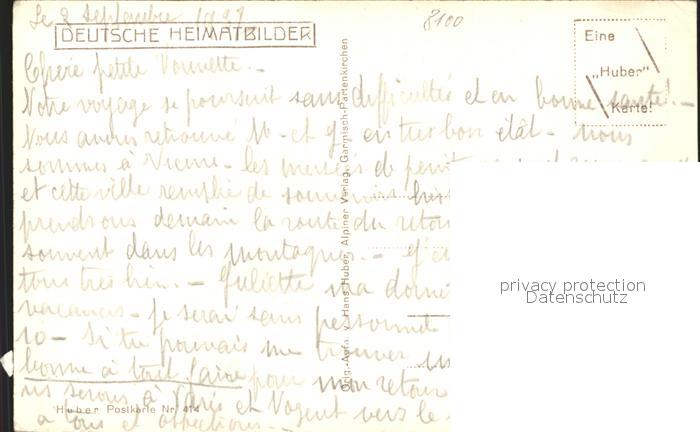 Le 3 septembre 1937
8100
DEUTSCHE HEIMATBILDER
Eine
„Huber"
Karte!
Chère petite
Notre voyage se poursuit sans difficultés et en bonne santé. -
Nous avons retrouvé M - et en très bon état - nous
sommes à Vienne - les musées de
et cette ville remplie de souvenirs
prendrons demain la route du retour
souvent dans les montagnes. -
tous très bien. - Juliette m'a
vacances. - Je serai sans personne
10 - Si tu pouvais me trouver
bonne à tout faire pour mon retour
serons à Paris et Nogent vers le
à tous et affections. -
Huber Postkarte Nr. 414
Orig.-Aufn. v. Hans Huber, Alpiner Verlag, Garmisch-Partenkirchen
privacy protection
Datenschutz